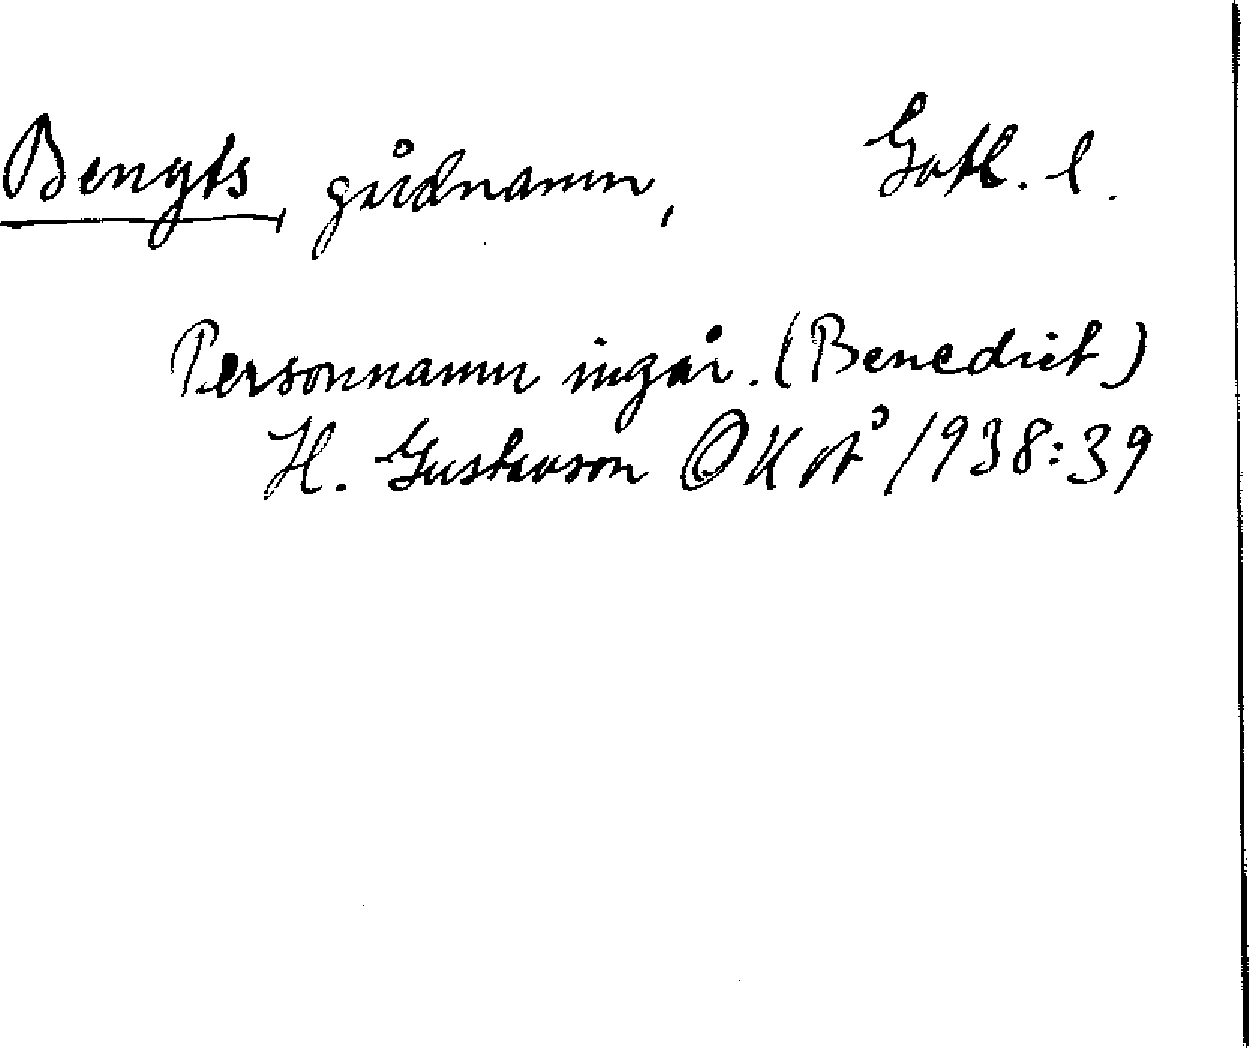 Bengts, gårdnamn, Gotl. l.
Personnamn ingår. (Benedict)
H. Gustavson OKÅ 1938:39